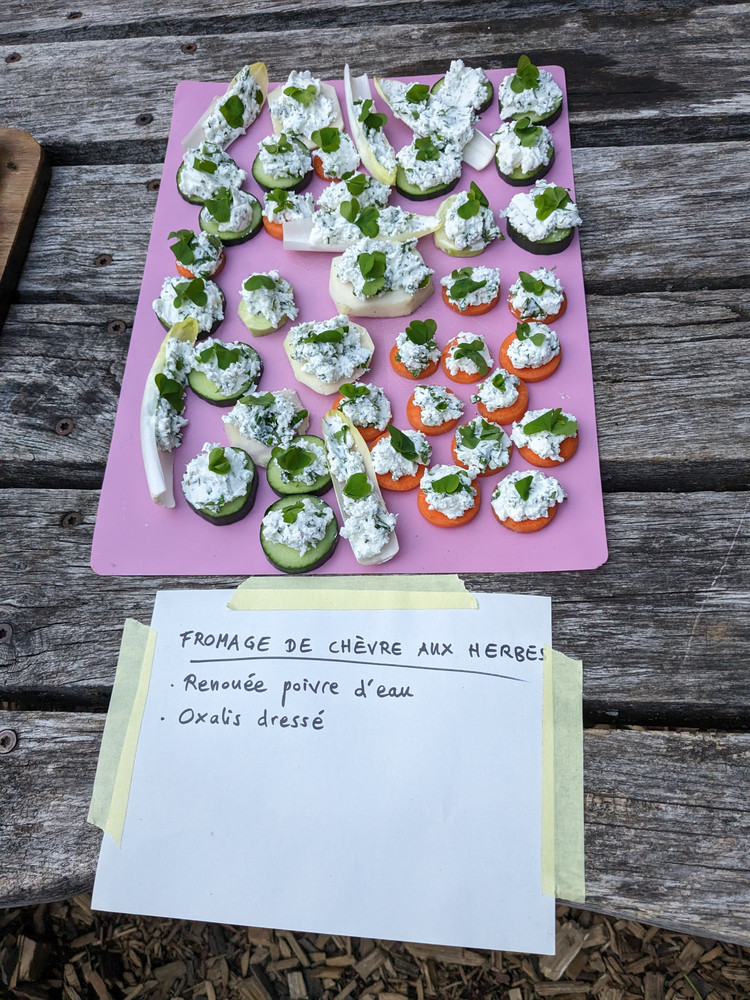 FROMAGE DE CHÈVRE AUX HERBES
· Renouée poivre d'eau
· Oxalis dressé